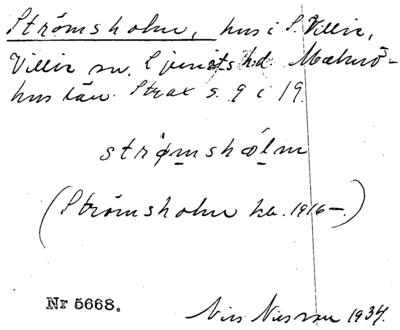 Strömsholm, hus i S. Villie,
Villie sn. Ljunits hd. Malmö-
hus län. Strax s. 9 i 19.
strømshólm
(Strömsholm kb. 1916–.)
Nr 5668. Nils Nilsson 1934.